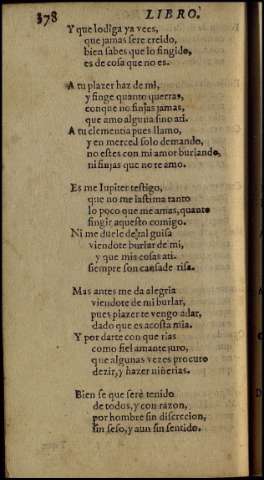 378 LIBRO.
Y que lo diga ya vees,
que jamas sere creido,
bien sabes que lo fingido,
es de cosa que no es.
A tu plazer haz de mi,
y finge quanto querras,
conque no finjas jamas,
que amo alguna sino ati.
A tu clementia pues llamo,
y en merced solo demando,
no estes con mi amor burlando,
ni finjas que no te amo.
Es me Iupiter testigo,
que no me lastima tanto
lo poco que me amas, quanto
fingir aquesto comigo.
Ni me duele de tal guisa
viendote burlar de mi,
y que mis cosas ati
siempre son causa de risa.
Mas antes me da alegria
viendote de mi burlar,
pues plazer te vengo a dar,
dado que es acosta mia.
Y por darte con que rias
como fiel amante juro,
que algunas vezes procuro
dezir, y hazer niñerias.
Bien se que serè tenido
de todos, y con razon,
por hombre sin discrecion,
sin seso, y aun sin sentido.